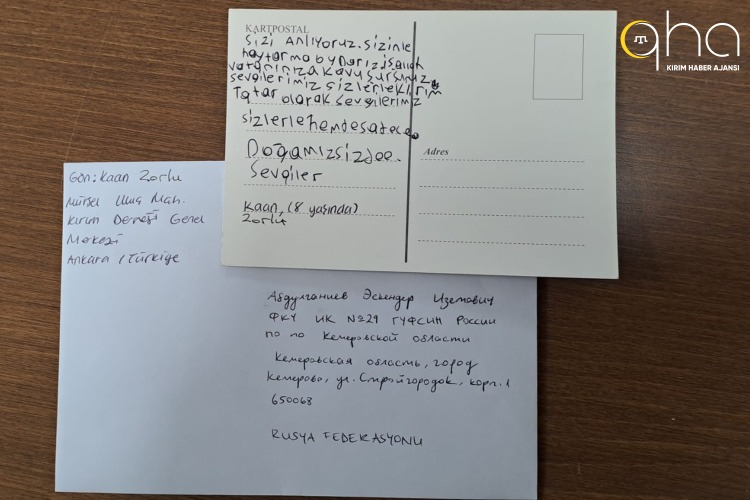 qha
KIRIM HABER AJANSI
KARTPOSTAL
sizi anlıyoruz. sizinle
haytarma oynarız işallah
vatanınıza kavuşursunuz
sevgilerimiz sizlerle kırım
Tatar olarak sevgilerimiz
sizlerle hemde
Doğamız sizdee.
Sevgiler
Kaan, (8 yaşında)
Zorlu
Adres
Gön: Kaan Zorlu
Mürsel Uluç Mah.
Kırım Derneği Genel
Merkezi
Ankara / Türkiye
Абдулганиев Эскендер Изетович
ФКУ ИК №29 ГУФСИН России
по по Кемеровской области
Кемеровская область, город
Кемерово, ул. Стройгородок, корп. 1
650068
RUSYA FEDERASYONU